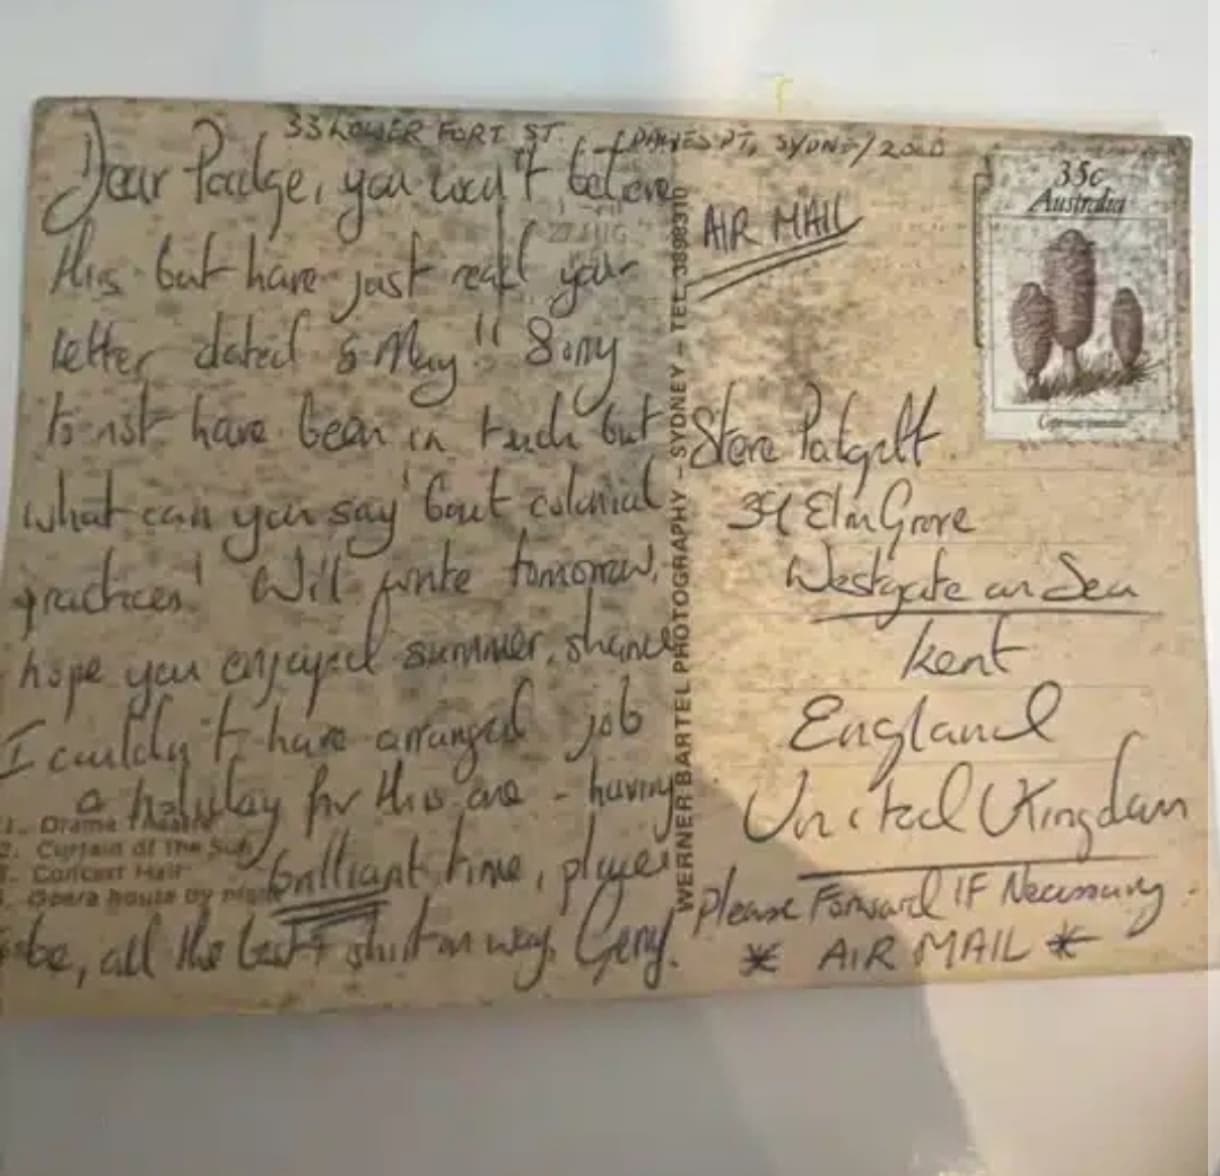 33 LOWER FORT ST. DAWES PT, SYDNEY 2000
Dear Padge, you won't believe
this but have just read your
letter dated 5 May!! Sorry
to not have been in touch but
what can you say 'bout colonial
practices! Will write tomorrow,
hope you enjoyed summer, shame
I couldn't have arranged job
a holiday for this one - having
brilliant time, place
be, all the best + shirt on way, Gerry.
1. Drama Theatre
2. Curtain of The Sun
Concert Hall
Opera house by night
WERNER BARTEL PHOTOGRAPHY - SYDNEY - TEL 3898310
27 AUG
35c
Australia
AIR MAIL
Steve
Elm Grove
Westgate on Sea
Kent
England
United Kingdom
Please Forward IF Necessary.
* AIR MAIL *